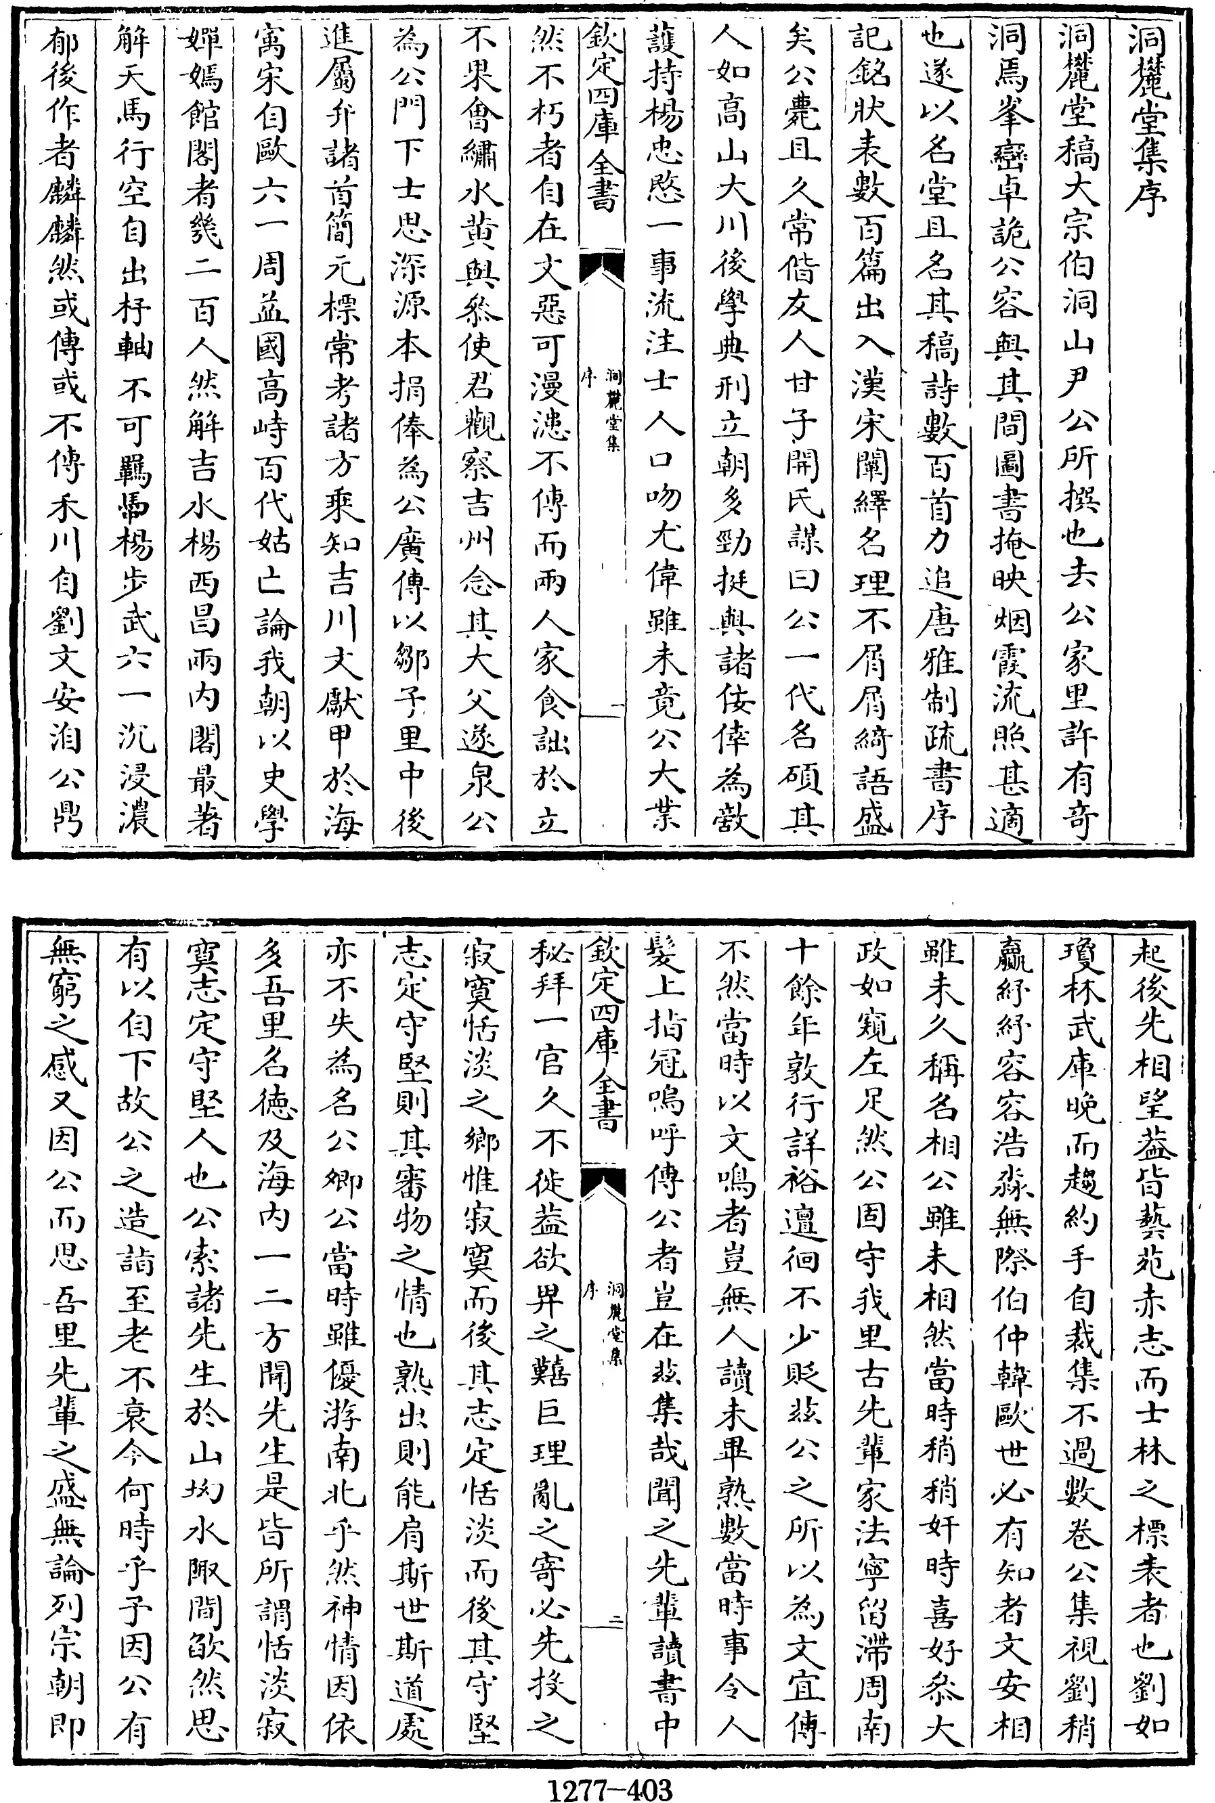 洞麓堂集序
洞麓堂稿大宗伯洞山尹公所撰也去公家里許有奇
洞焉峯巒卓詭公容與其間圖書掩映烟霞流照甚適
也遂以名堂且名其稿詩數百首力追唐雅制疏書序
記銘狀表數百篇出入漢宋闡繹名理不屑屑綺語盛
矣公薨且久常偕友人甘子開氏謀曰公一代名碩其
人如高山大川後學典刑立朝多勁挺與諸佞倖為敵
護持楊忠愍一事流注士人口吻尤偉雖未竟公大業
欽定四庫全書
洞麓堂集
序
一
然不朽者自在文惡可漫漶不傳而兩人家食詘於立
不果會繡水黄與參使君觀察吉州念其大父遂泉公
為公門下士思深源本捐俸為公廣傳以鄒子里中後
進屬弁諸首簡元標常考諸方乘知吉川文獻甲於海
寓宋自歐六一周益國高峙百代姑亡論我朝以史學
嬋嫣館閣者幾二百人然解吉水楊西昌兩内閣最著
解天馬行空自出杼軸不可羈馽楊步武六一沉浸濃
郁後作者麟麟然或傳或不傳禾川自劉文安洎公鼎
起後先相望葢皆藝苑赤志而士林之標表者也劉如
瓊林武庫晚而趨約手自裁集不過數卷公集視劉稍
贏紆紆容容浩淼無際伯仲韓歐世必有知者文安相
雖未久稱名相公雖未相然當時稍稍奸時喜好叅大
政如窺左足然公固守我里古先輩家法寧留滯周南
十餘年敦行詳裕邅徊不少貶茲公之所以為文宜傳
不然當時以文鳴者豈無人讀未畢熟數當時事令人
髮上指冠嗚呼傳公者豈在茲集哉聞之先輩讀書中
欽定四庫全書
洞麓堂集
序
二
秘拜一官久不徙葢欲畀之囏巨理亂之寄必先投之
寂寞恬淡之鄉惟寂寞而後其志定恬淡而後其守堅
志定守堅則其審物之情也熟出則能肩斯世斯道處
亦不失為名公卿公當時雖優游南北乎然神情因依
多吾里名德及海内一二方聞先生是皆所謂恬淡寂
寞志定守堅人也公索諸先生於山坳水陬間欿然思
有以自下故公之造詣至老不衰今何時乎予因公有
無窮之感又因公而思吾里先輩之盛無論列宗朝即
1277-403